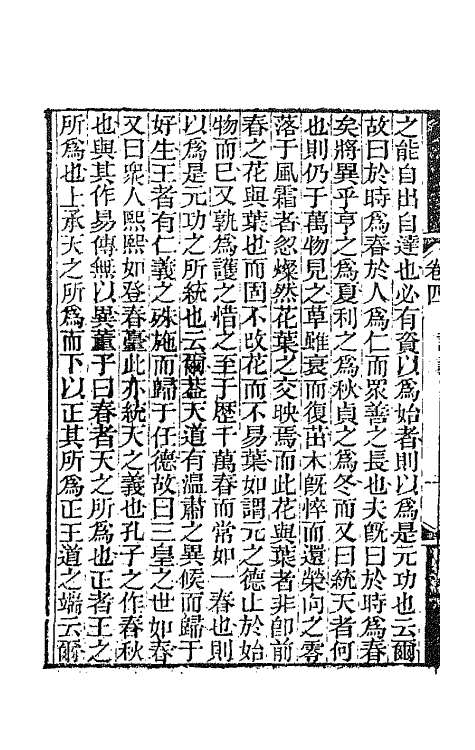 之能自出自達也必有資以爲始者則以爲是元功也云爾
故曰於時爲春於人爲仁而眾善之長也夫旣曰於時爲春
矣將異乎亨之爲夏利之爲秋貞之爲冬而又曰統天者何
也則仍于萬物見之草雖衰而復茁木旣悴而還榮向之零
落于風霜者忽燦然花葉之交映焉而此花與葉者非卽前
春之花與葉也而固不改花而不易葉如謂元之德止於始
物而已又孰爲護之惜之至于歷千萬春而常如一春也則
以爲是元功之所統也云爾葢天道有温肅之異候而歸于
好生王者有仁義之殊施而歸于任德故曰三皇之世如春
又曰衆人熙熙如登春臺此亦統天之義也孔子之作春秋
也與其作易傳無以異董子曰春者天之所爲也正者王之
所爲也上承天之所爲而下以正其所爲正王道之端云爾
卷四